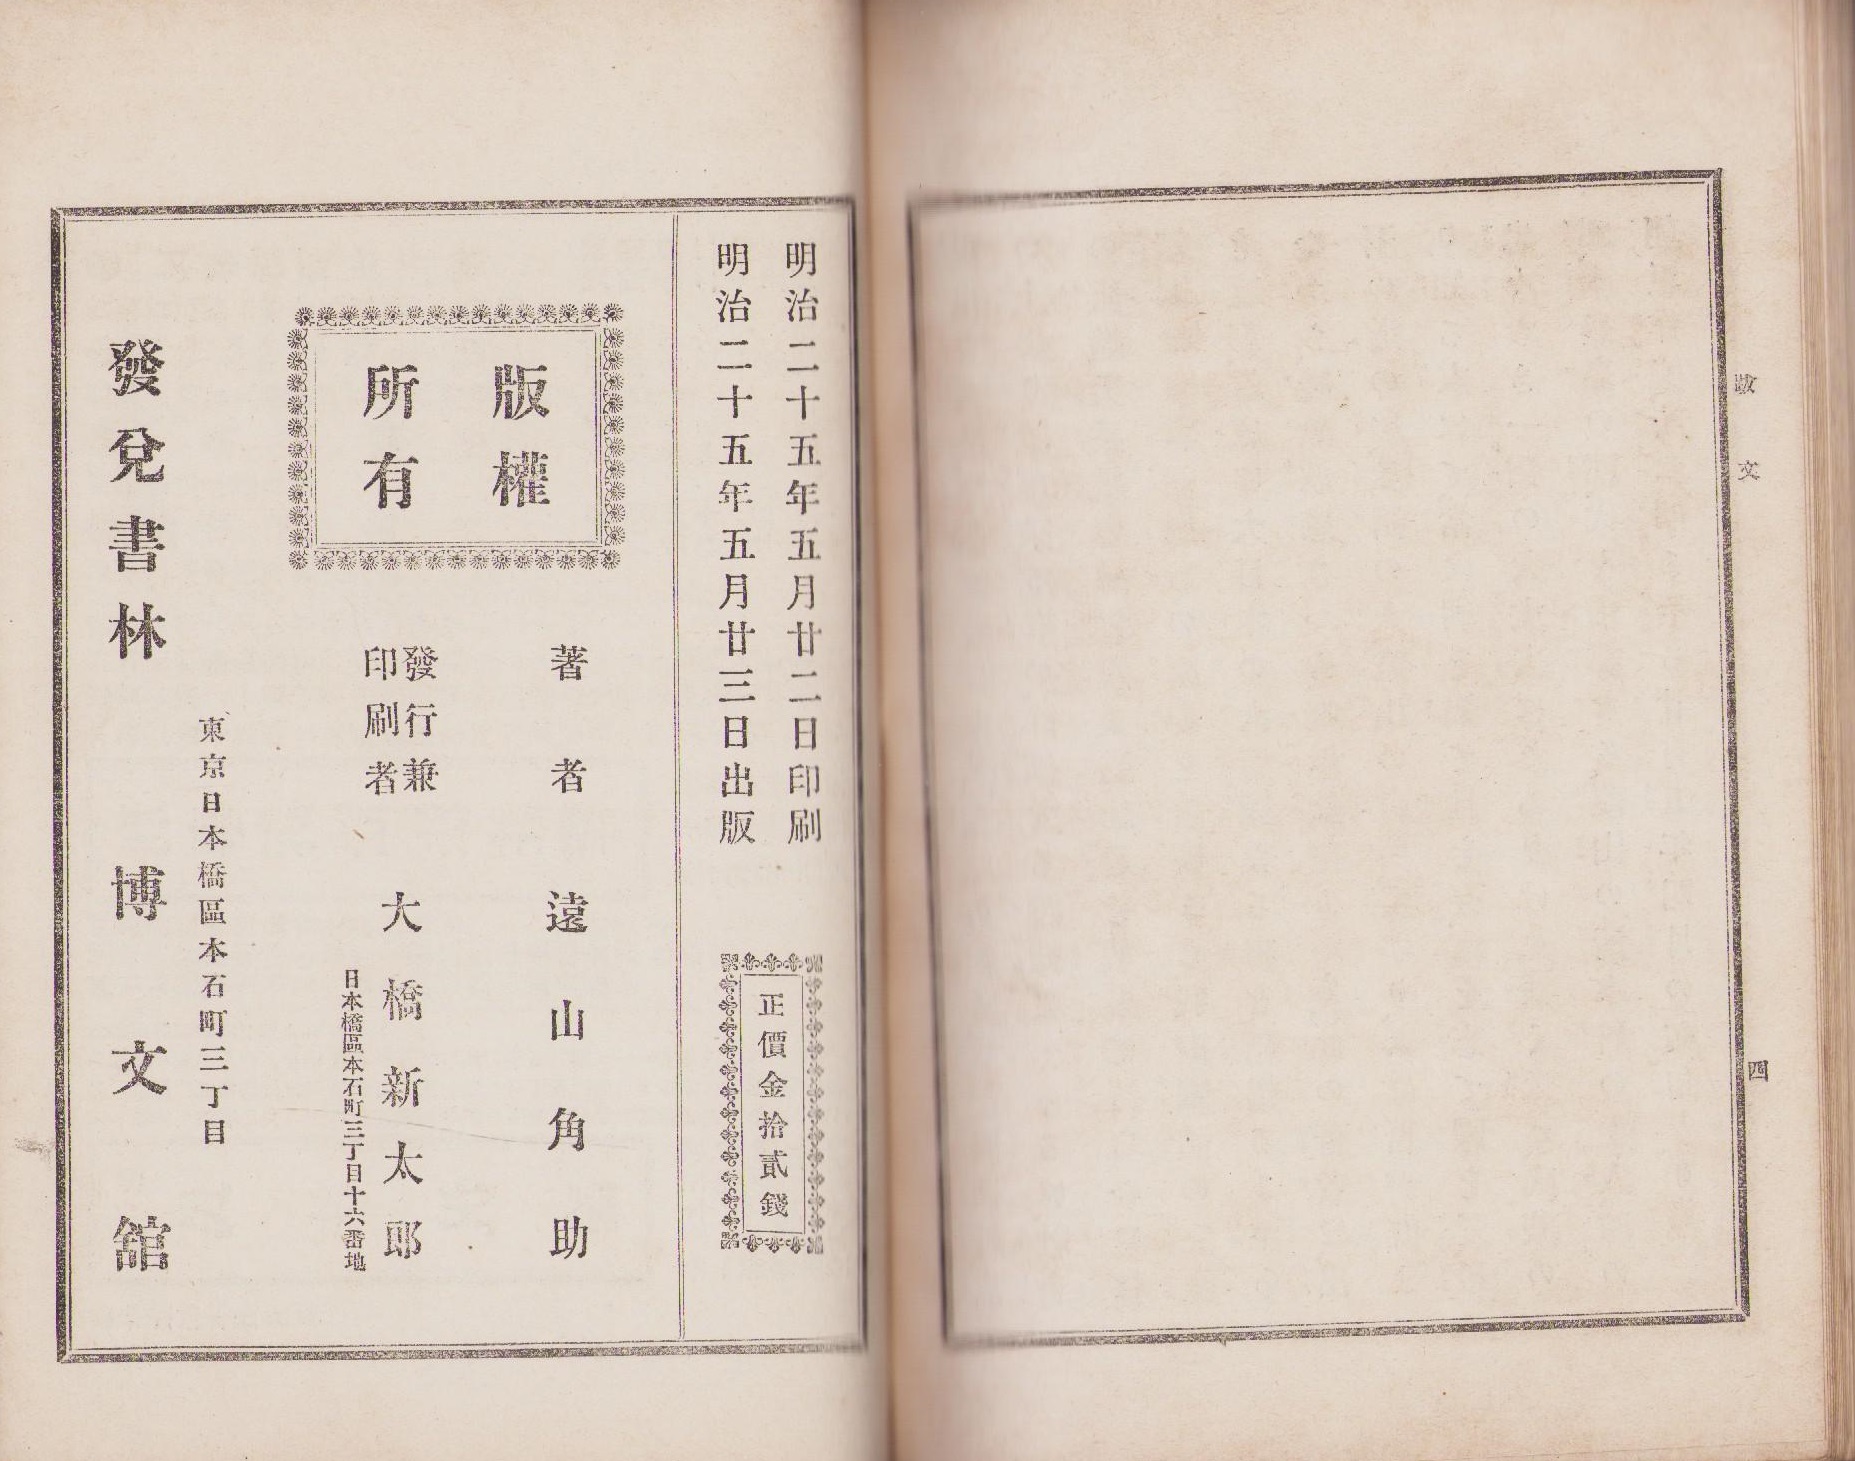 跋文
四
明治二十五年五月廿二日印刷
明治二十五年五月廿三日出版
正價金拾貳錢
版權
所有
著者 遠山角助
發行兼
印刷者
大橋新太郎
日本橋區本石町三丁目十六番地
東京日本橋區本石町三丁目
發兌書林 博文舘